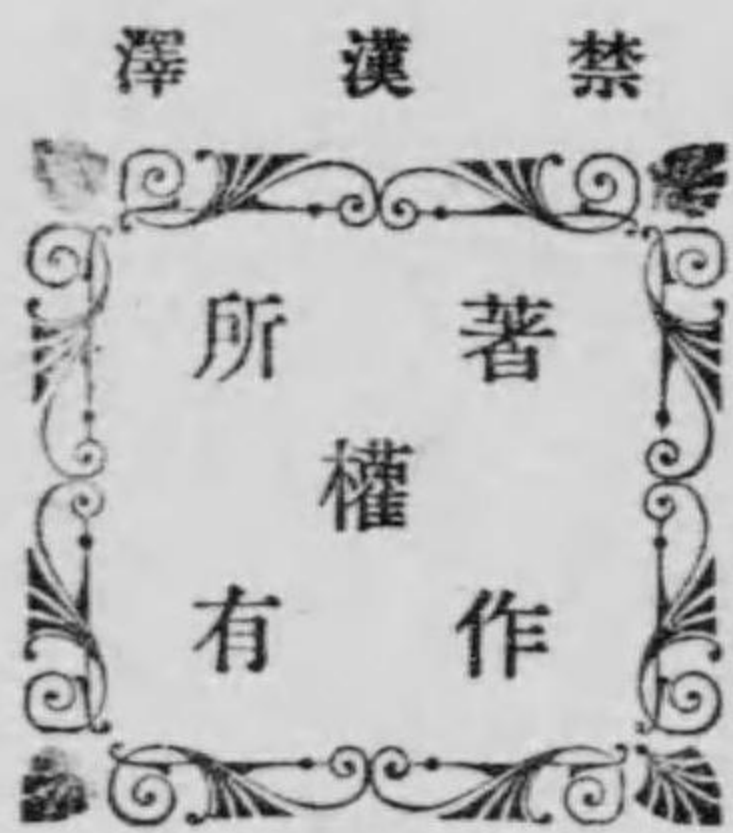 禁漢澤
著作權所有